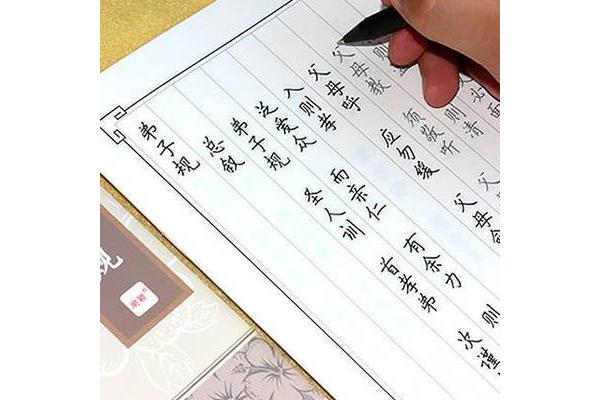 弟子规
总叙
弟子规 圣人训 首孝弟 次谨
泛爱众 而亲仁 有余力 则
入则孝
父母呼 应勿缓 父母
父母教 须敬听 父
则 则清
必面